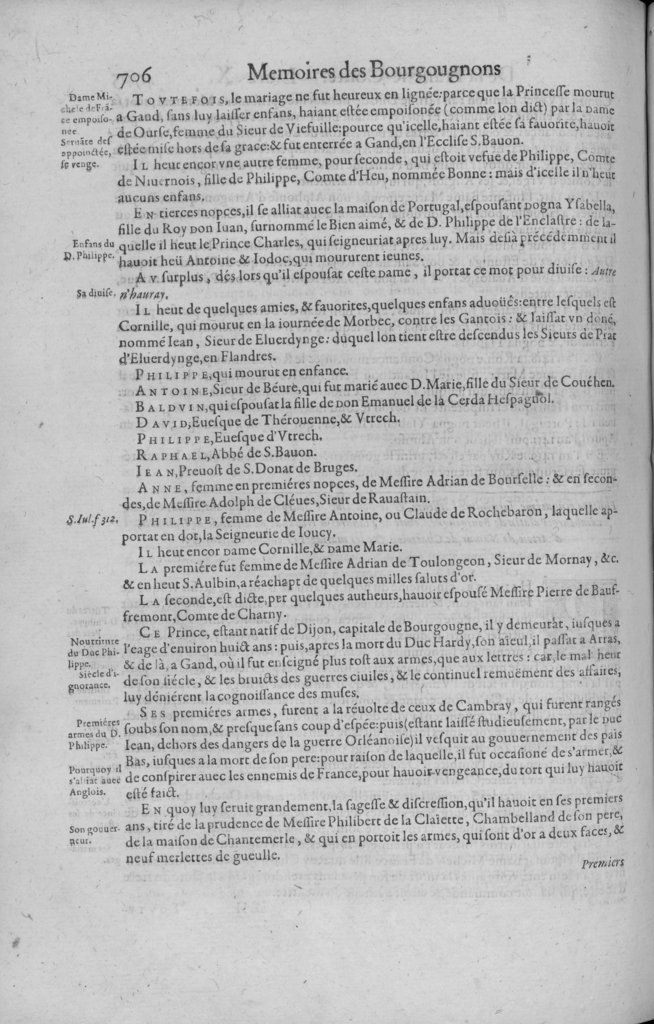 706
Memoires des Bourgougnons
Dame Mi-
chele de Frā-
ce empoiso-
nee.
Seruāte des-
appoinctée,
se venge.
TOVTEFOIS, le mariage ne fut heureux en lignée: parce que la Princesse mourut
a Gand, sans luy laisser enfans, haiant estée empoisonée (comme lon dict) par la Dame
de Ourse, femme du Sieur de Viefuille: pource qu'icelle, haiant estée sa fauorite, hauoit
estée mise hors de sa grace: & fut enterrée a Gand, en l'Ecclise S. Bauon.
IL heut encor vne autre femme, pour seconde, qui estoit vefue de Philippe, Comte
de Niuernois, fille de Philippe, Comte d'Heu, nommée Bonne: mais d'icelle il n'heut
aucuns enfans.
EN tierces nopces, il se alliat auec la maison de Portugal, espousant Dogna Ysabella,
fille du Roy Don Iuan, surnommé le Bien aimé, & de D. Philippe de l'Enclastre: de la-
Enfans du
D. Philippe.
quelle il heut le Prince Charles, qui seigneuriat apres luy. Mais desia précédemment il
hauoit heü Antoine & Iodoc, qui moururent ieunes.
AV surplus, dés lors qu'il espousat ceste Dame, il portat ce mot pour diuise: Autre
Sa diuise.
n'hauray.
IL heut de quelques amies, & fauorites, quelques enfans aduoüés: entre lesquels est
Cornille, qui mourut en la iournée de Morbec, contre les Gantois: & laissat vn doné,
nommé Iean, Sieur de Eluerdynge: duquel lon tient estre descendus les Sieurs de Prat
d'Eluerdynge, en Flandres.
PHILIPPE, qui mourut en enfance.
ANTOINE, Sieur de Béure, qui fut marié auec D. Marie, fille du Sieur de Couéhen.
BALDVIN, qui espousat la fille de Don Emanuel de la Cerda Hespagnol.
DAVID, Euesque de Thérouenne, & Vtrech.
PHILIPPE, Euesque d'Vtrech.
RAPHAEL, Abbé de S. Bauon.
IEAN, Preuost de S. Donat de Bruges.
ANNE, femme en premiéres nopces, de Messire Adrian de Bourselle: & en secon-
des, de Messire Adolph de Cléues, Sieur de Rauastain.
S. Iul. f 312.
PHILIPPE, femme de Messire Antoine, ou Claude de Rochebaron, laquelle ap-
portat en dot, la Seigneurie de Ioucy.
IL heut encor Dame Cornille, & Dame Marie.
LA premiére fut femme de Messire Adrian de Toulongeon, Sieur de Mornay, &c.
& en heut S. Aulbin, a réachapt de quelques milles saluts d'or.
LA seconde, est dicte, per quelques autheurs, hauoir espousé Messire Pierre de Bauf-
fremont, Comte de Charny.
Nourriture
du Duc Phi-
lippe.
Siécle d'i-
gnorance.
CE Prince, estant natif de Dijon, capitale de Bourgougne, il y demeurat, iusques a
l'eage d'enuiron huict ans: puis, apres la mort du Duc Hardy, son aïeul, il passat a Arras,
& de là, a Gand, où il fut enseigné plus tost aux armes, que aux lettres: car, le mal heur
de son siécle, & les bruicts des guerres ciuiles, & le continuel remuëment des affaires,
luy déniérent la cognoissance des muses.
Premiéres
armes du D.
Philippe.
SES premiéres armes, furent a la réuolte de ceux de Cambray, qui furent rangés
soubs son nom, & presque sans coup d'espée: puis (estant laissé studieusement, par le Duc
Iean, dehors des dangers de la guerre Orléanoise) il vesquit au gouuernement des païs
Pourquoy il
s'alliat auec
Anglois.
Bas, iusques a la mort de son pere: pour raison de laquelle, il fut occasioné de s'armer, &
de conspirer auec les ennemis de France, pour hauoir vengeance, du tort qui luy hauoit
esté faict.
Son gouuer-
neur.
EN quoy luy seruit grandement, la sagesse & discression, qu'il hauoit en ses premiers
ans, tiré de la prudence de Messire Philibert de la Claiette, Chambelland de son pere,
de la maison de Chantemerle, & qui en portoit les armes, qui sont d'or a deux faces, &
neuf merlettes de gueulle.
Premiers